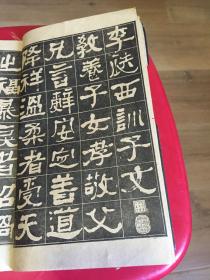 李燧西訓子文
教養子女孝敬父
兄言辭安向善道
降祥溫柔者受天
之福暴戾者召